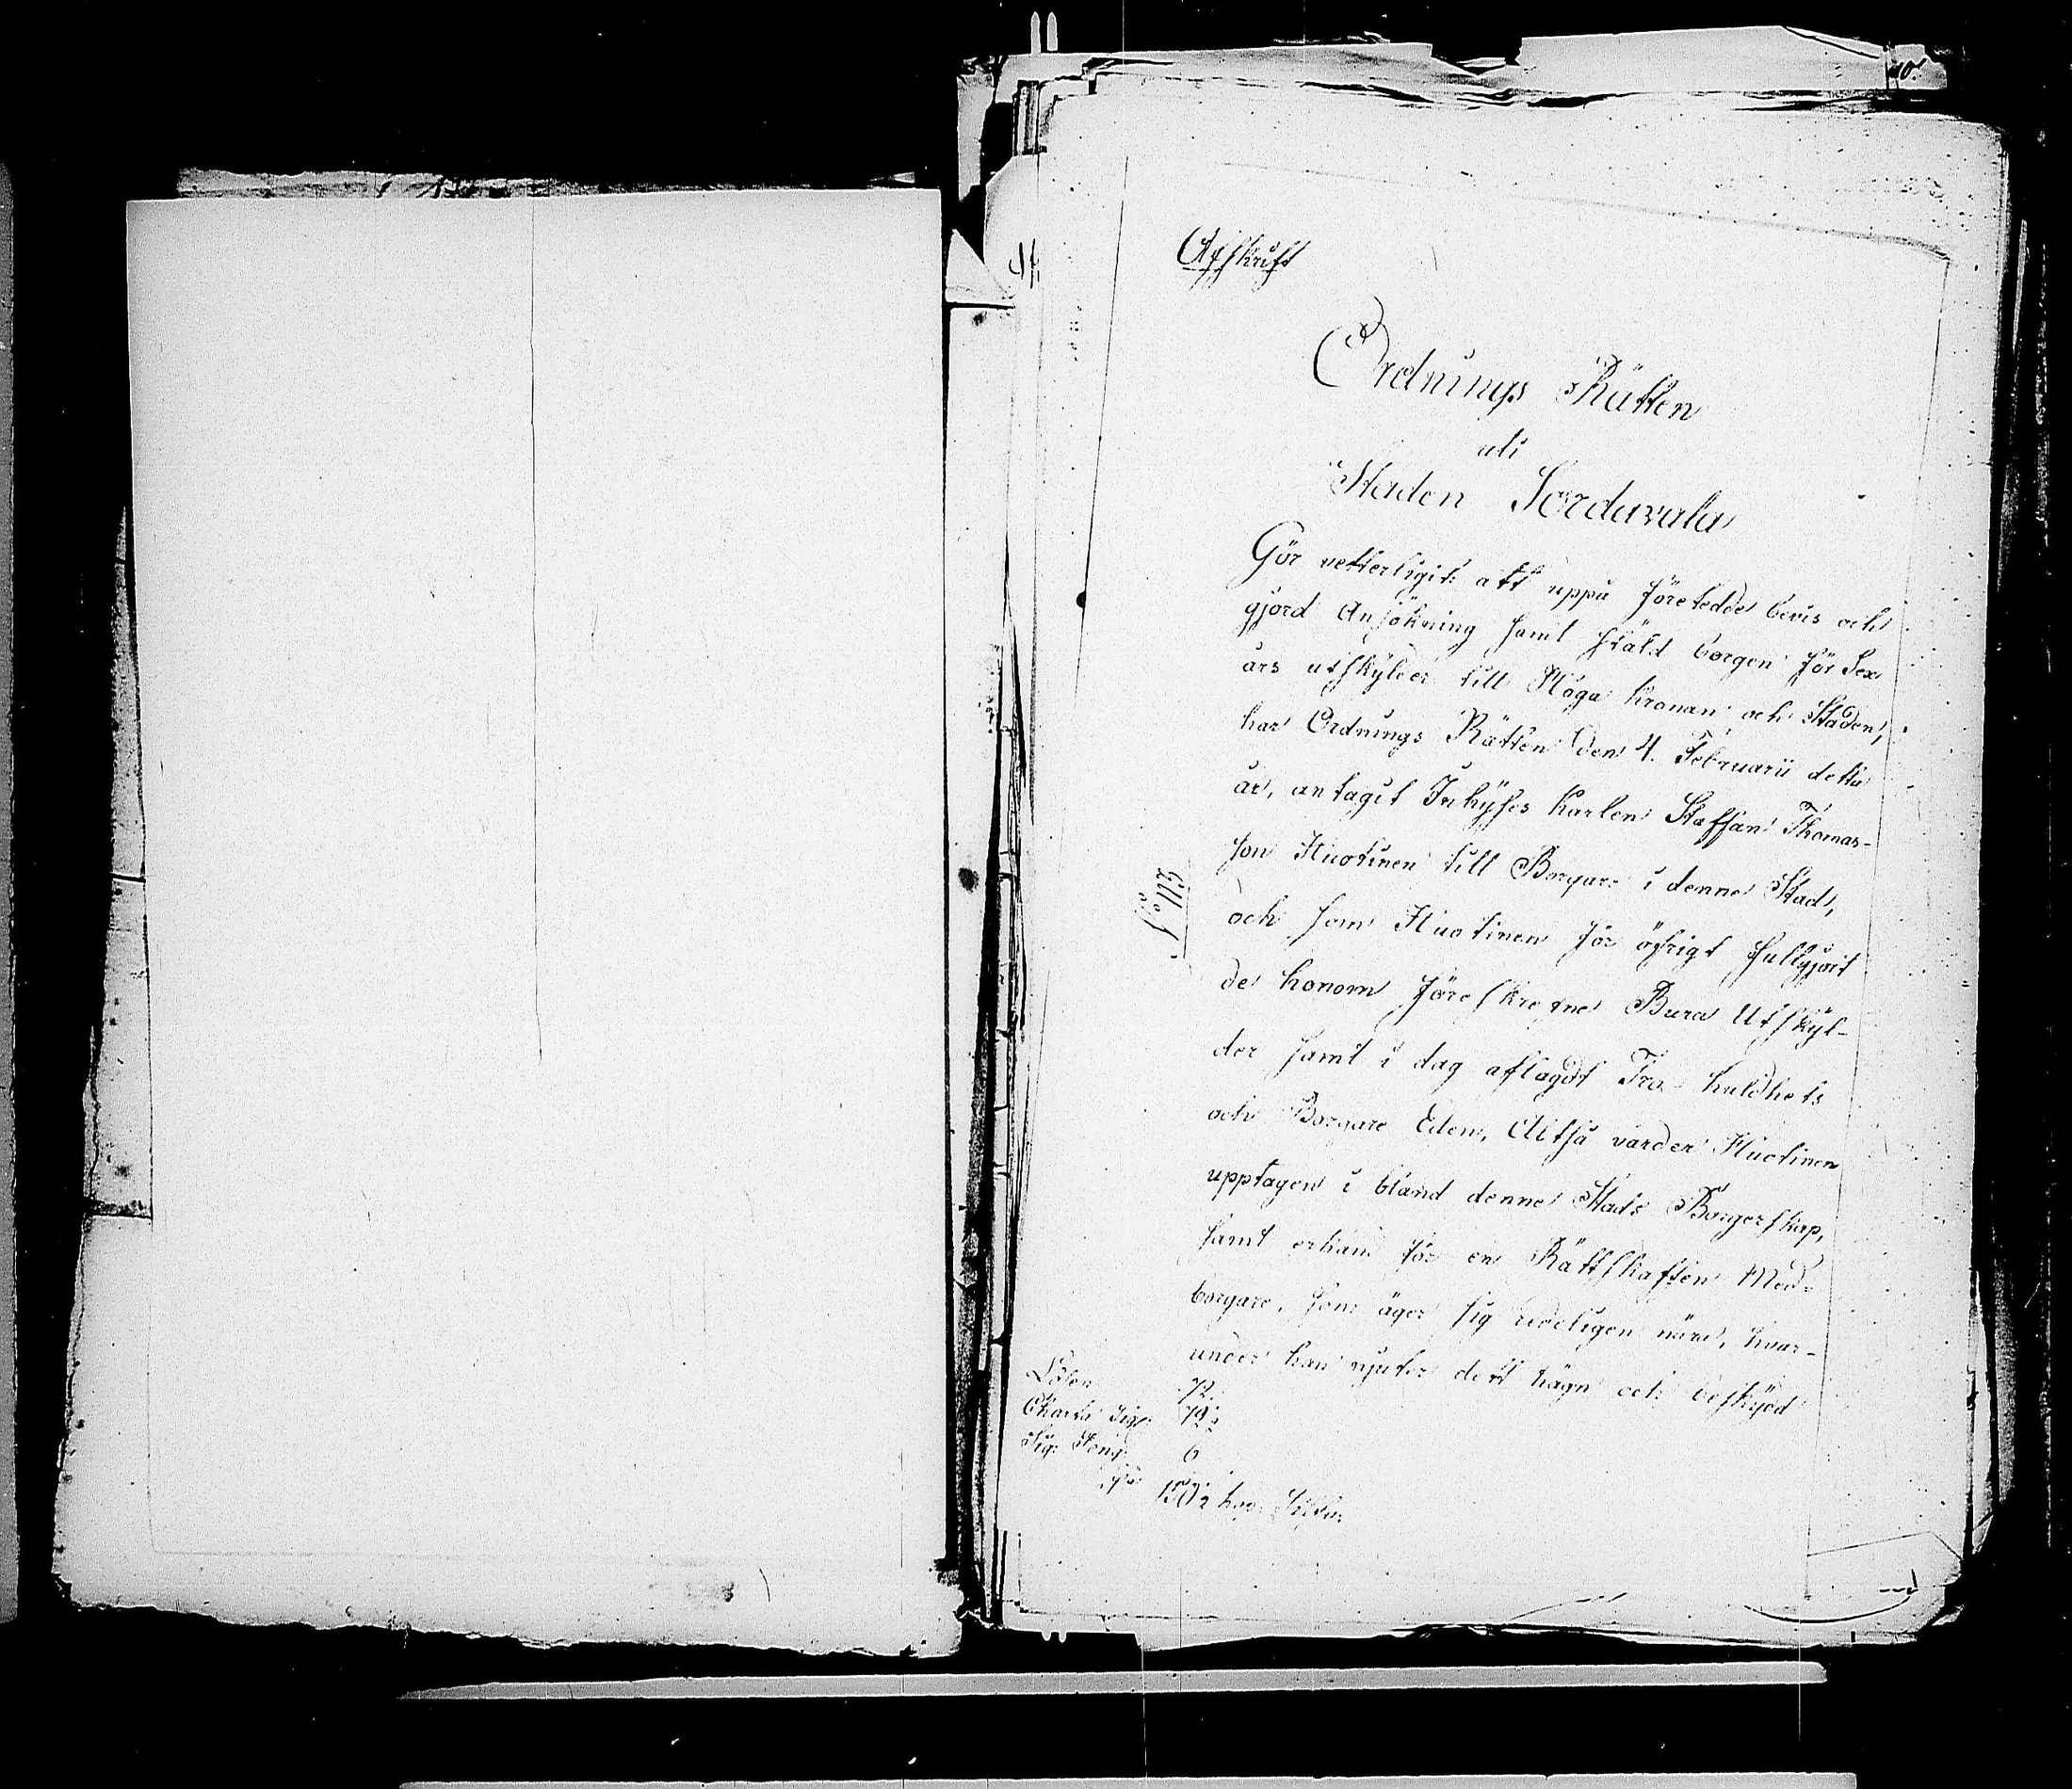 10.
Afskrift
Ordnings Rätten
uti
Staden Sordavala
Gör vetterligit: att uppå företedde bevis och
gjord Ansökning samt stäld borgen för Sex
års utskylder till Höga Kronan och Staden,
har Ordnings Rätten den 4. Februarii detta
år, antagit Inhyses Karlen Staffan Thomas-
son Huotinen till Borgare i denne Stad,
och som Huotinen för öfrigt fullgjort
de honom föreskrefne Bura Utskyl-
der samt i dag aflagdt Tro- huldhets
och Borgare Eden, Altså varder Huotinen
upptagen i bland denne Stads Borgerskap,
samt erkänd för en Rättskaffen Med-
borgare, som äger sig redeligen nära, hvar-
under han njuter dett hägn och beskydd
Lösen 72.
Charta Sigl: 79½
Sig: Peng: 6
157½ kop: Silfver